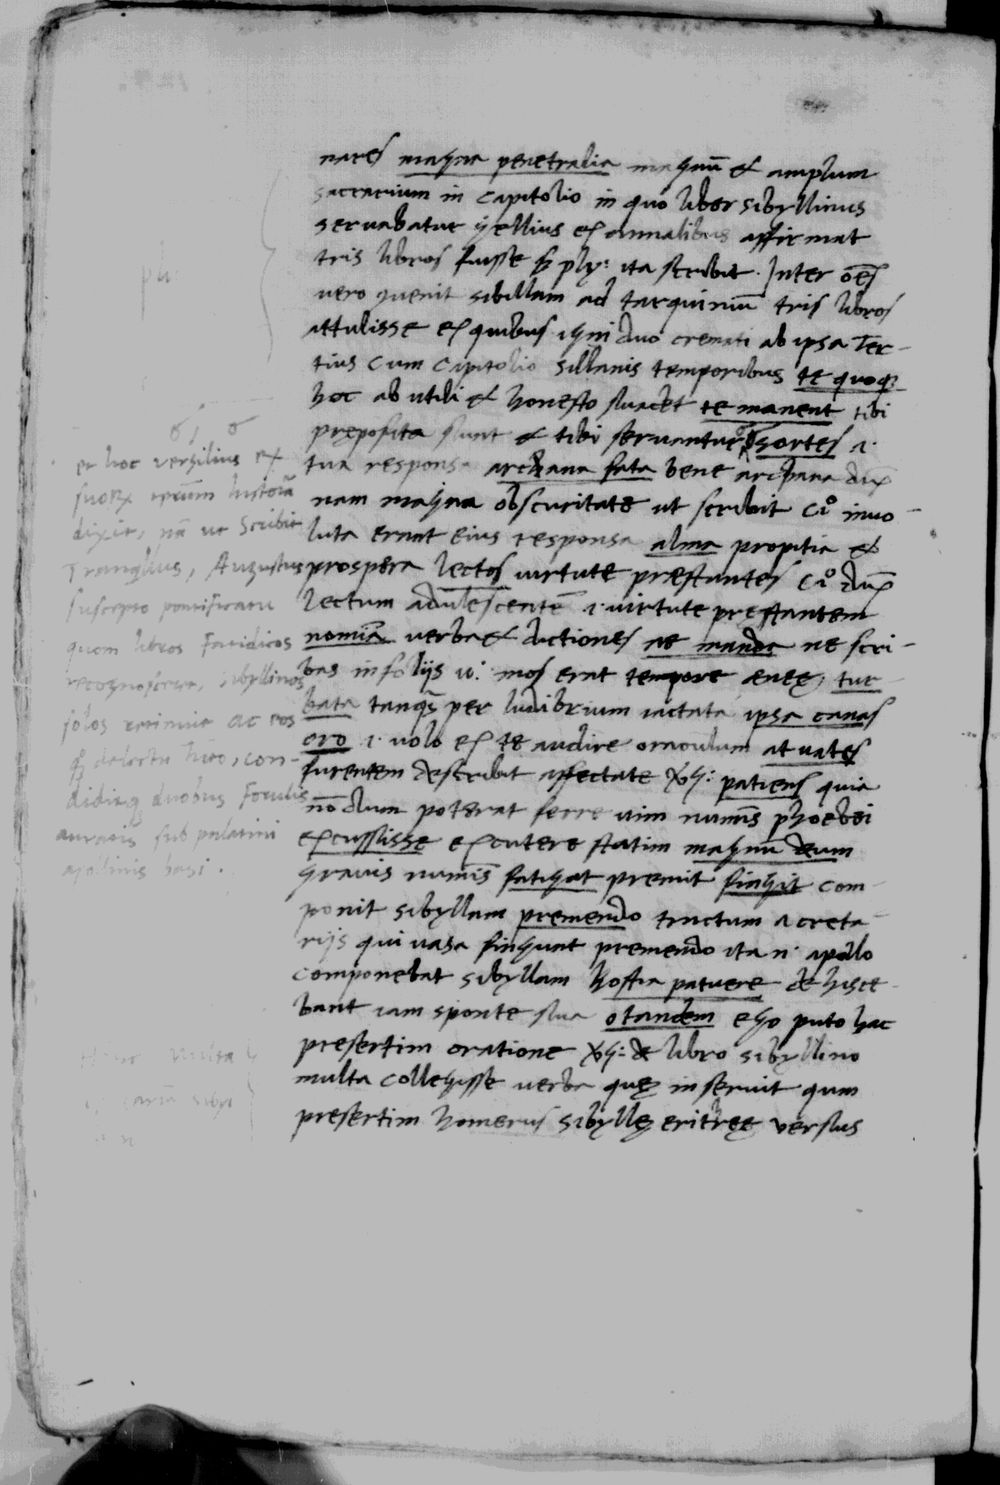 nares magna penetralia magnū & amplum
sacrarium in capitolio in quo liber sibyllinus
servabatur gellius ex annalibus affirmat
tris libros fuisse ply: ita scribit. Inter oēs
vero quenit sibillam ad tarquiniū tris libros
attulisse ex quibus igni duo cremati ab ipsa Ter-
tius cum capitolio sillanis temporibus te quoq;
hoc ab utili & honesto suadet te manent tibi
preposita sunt & tibi servantur sortes i.
tua responsa archana fata bene archana
nam magna obscuritate ut scribit Ci͡o invo-
luta erant eius responsa alma propitia &
prospera lectos virtute præstantes Ci͡o
lectum adulescentē i. virtute prestantem
nomīa verba & dictiones ne manda ne scri-
bas in folijs mos erat tempore æneę, tur-
bata tanq̄ per ludibrium iactata ipsa canas
oro i. volo ex te audire oraculum at vates
furentem describit affectate patiens quia
nōdum poterat ferre vim numīs phoebei
excussisse excutere statim magnū deum
gravis numīs fatigat premit fingit com-
ponit sibyllam premendo tractum a creta-
rijs qui vasa fingunt premendo ita n. apollo
componebat sibyllam hostia patuere dehisce-
bant iam sponte sua o tandem ego puto hac
presertim oratione de libro sibyllino
multa collegisse verba quę inseruit qum
presertim homerus sibyllę eritreę versus
et hoc vergilius ex
suorȝ historia
dixit, nā ut scribit
Tranqllus, Augustus
suscepto pontificatu
quom libros Fatidicos
recognosceret, sibyllinos
solos retinuit ac eos
delectu hito, con-
diditq duobus Forulis
auratis sub palatini
apollinis basi.
multa